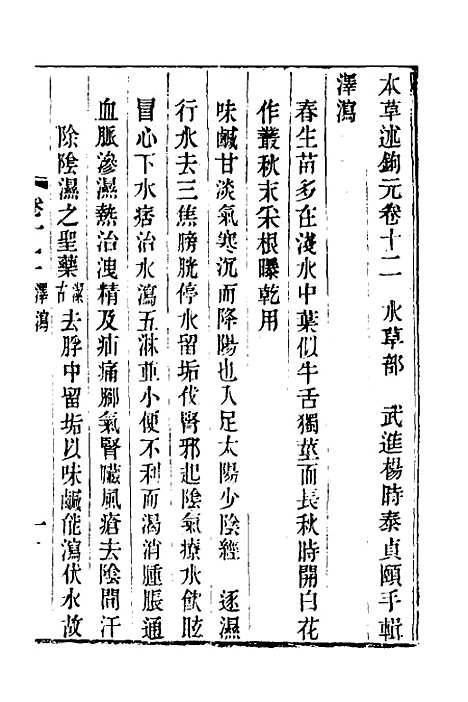 本草述鉤元卷十二　水草部　武進楊時泰貞頤手輯
澤瀉
春生苗多在淺水中葉似牛舌獨莖而長秋時開白花
作叢秋末采根曝乾用
味鹹甘淡氣寒沉而降陽也入足太陽少陰經　逐濕
行水去三焦膀胱停水留垢伐腎邪起陰氣療水飲眩
冒心下水痞治水瀉五淋並小便不利而渴消腫脹通
血脈滲濕熱治洩精及疝痛腳氣腎臟風瘡去陰間汗
除陰濕之聖藥潔古去脬中留垢以味鹹能瀉伏水故
澤瀉
一